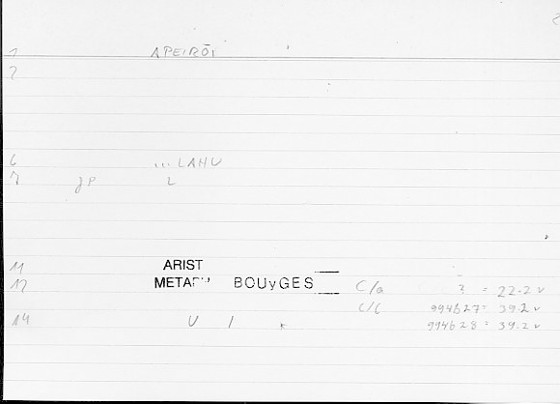 1 APEIRŌI
2
6 ... LAHU
7 JP L
11 ARIST
12 METAPH BOUYGES C/a 2 = 22-2 v
C/C 994b27= 39.2 v
14 U / 994b28= 39.2 v